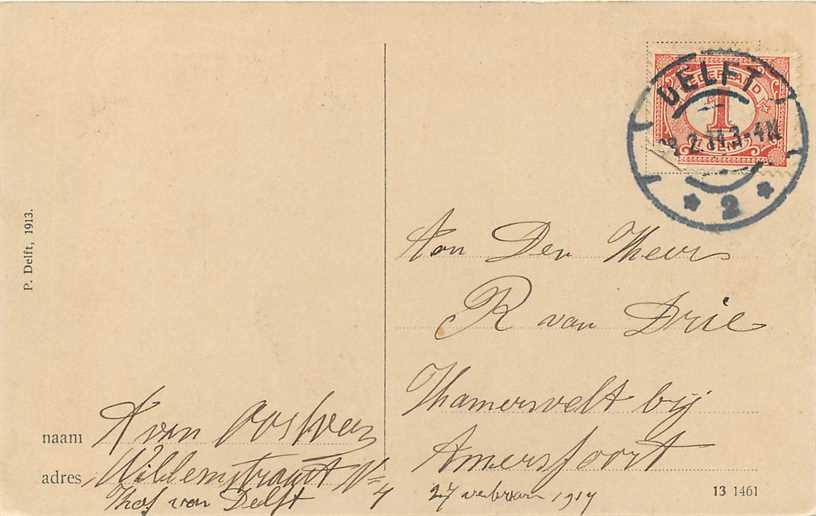 NEDERLAND
1
CENT
DELFT
2.14.3-4N
2
P. Delft, 1913.
Aan Den Heer
R van Drie
Hamersvelt bij
Amersfoort
naam K van Oostveen
adres Willemstraat No 4
Hof van Delft
27 februari 1914
13 1461